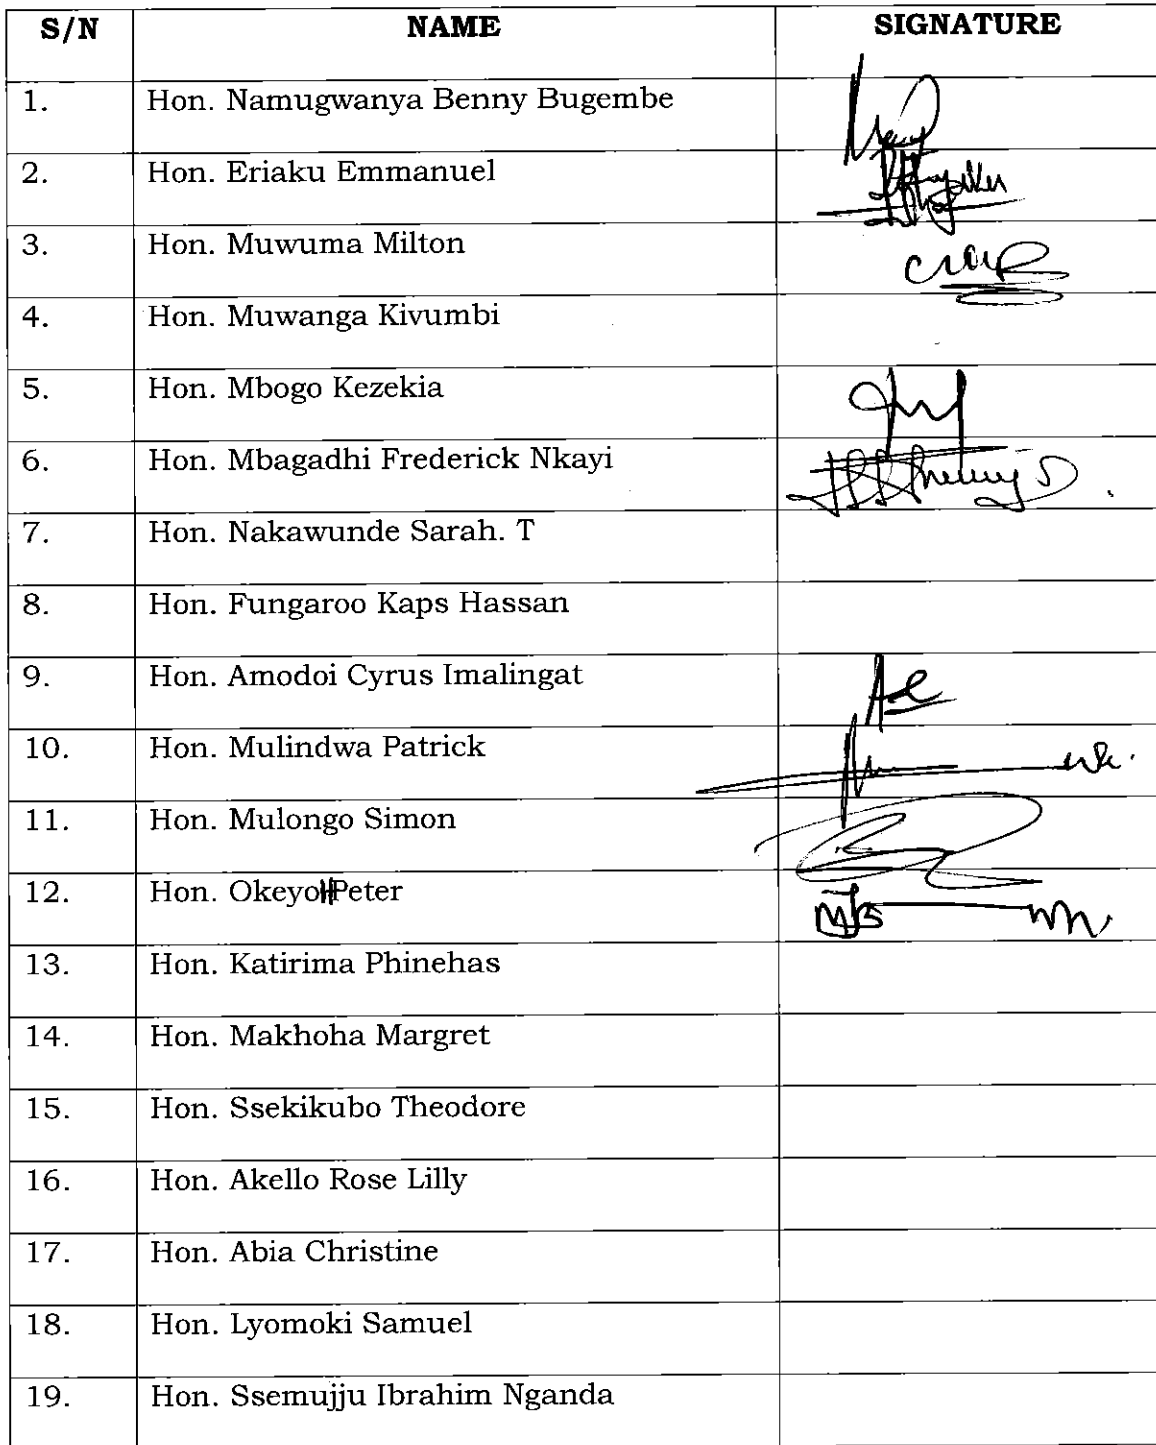 S/N NAME SIGNATURE
1. Hon. Namugwanya Benny Bugembe
2. Hon. Eriaku Emmanuel
3. Hon. Muwuma Milton
4. Hon. Muwanga Kivumbi
5. Hon. Mbogo Kezekia
6. Hon. Mbagadhi Frederick Nkayi
7. Hon. Nakawunde Sarah. T
8. Hon. Fungaroo Kaps Hassan
9. Hon. Amodoi Cyrus Imalingat
10. Hon. Mulindwa Patrick
11. Hon. Mulongo Simon
12. Hon. Okeyoh Peter
13. Hon. Katirima Phinehas
14. Hon. Makhoha Margret
15. Hon. Ssekikubo Theodore
16. Hon. Akello Rose Lilly
17. Hon. Abia Christine
18. Hon. Lyomoki Samuel
19. Hon. Ssemujju Ibrahim Nganda